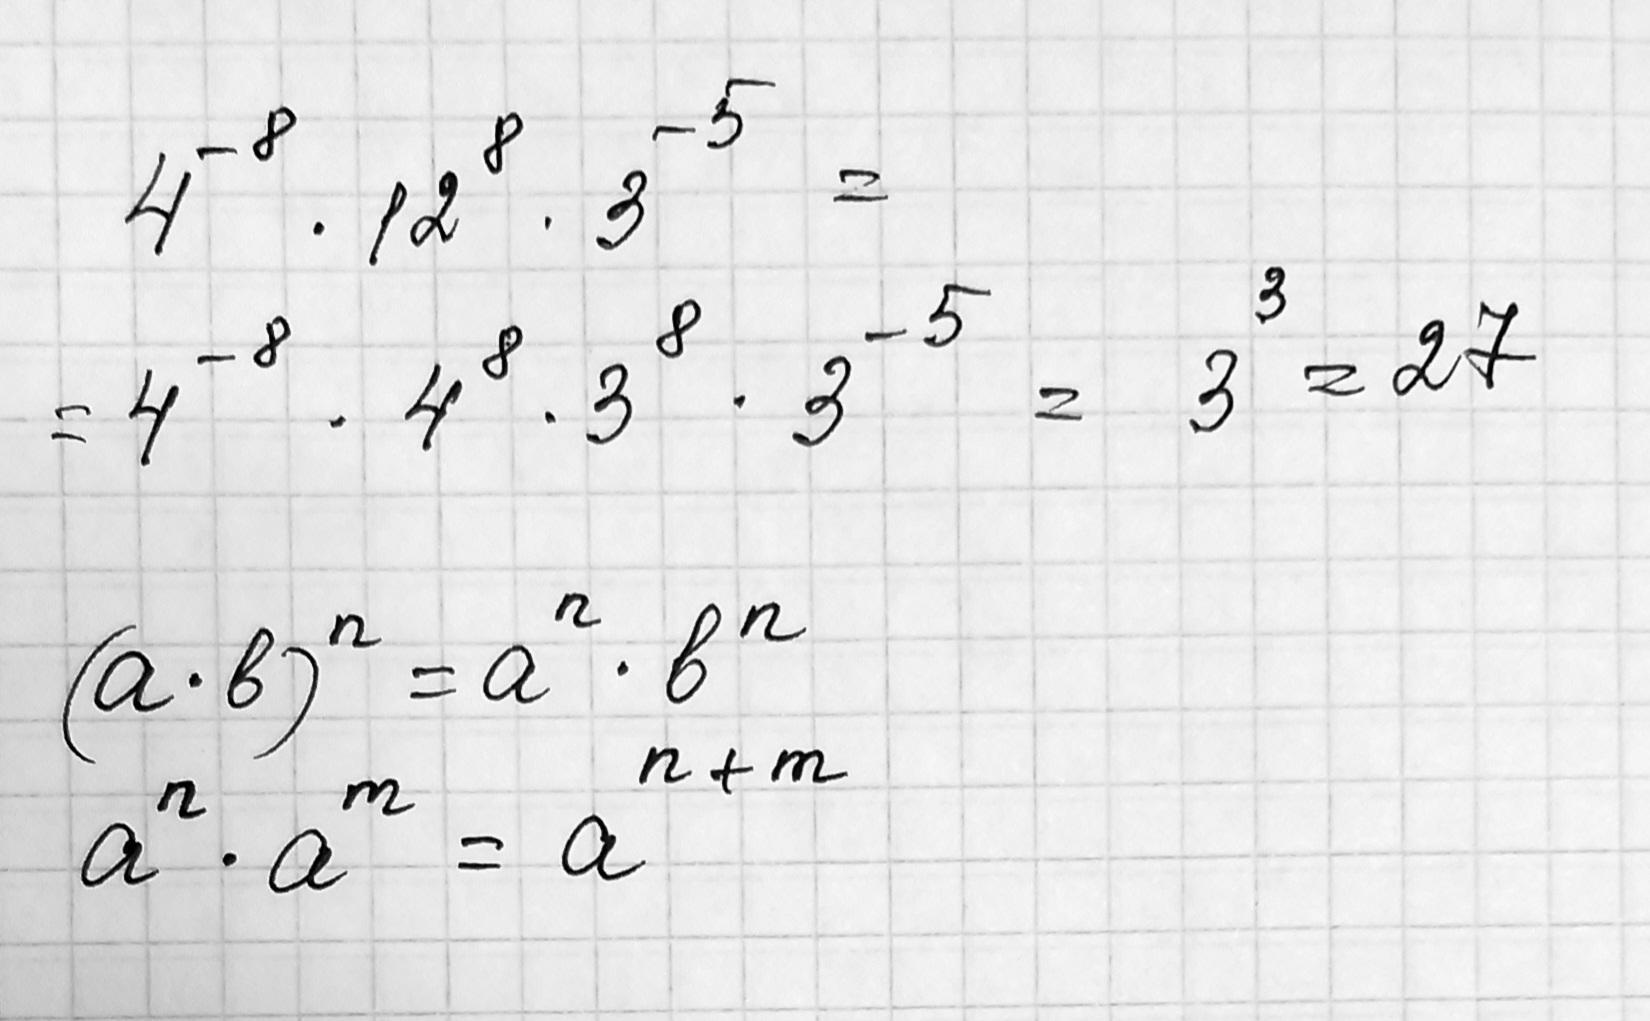 4⁻⁸ · 12⁸ · 3⁻⁵ =
= 4⁻⁸ · 4⁸ · 3⁸ · 3⁻⁵ = 3³ = 27
(a · b)ⁿ = aⁿ · bⁿ
aⁿ · aᵐ = aⁿ⁺ᵐ